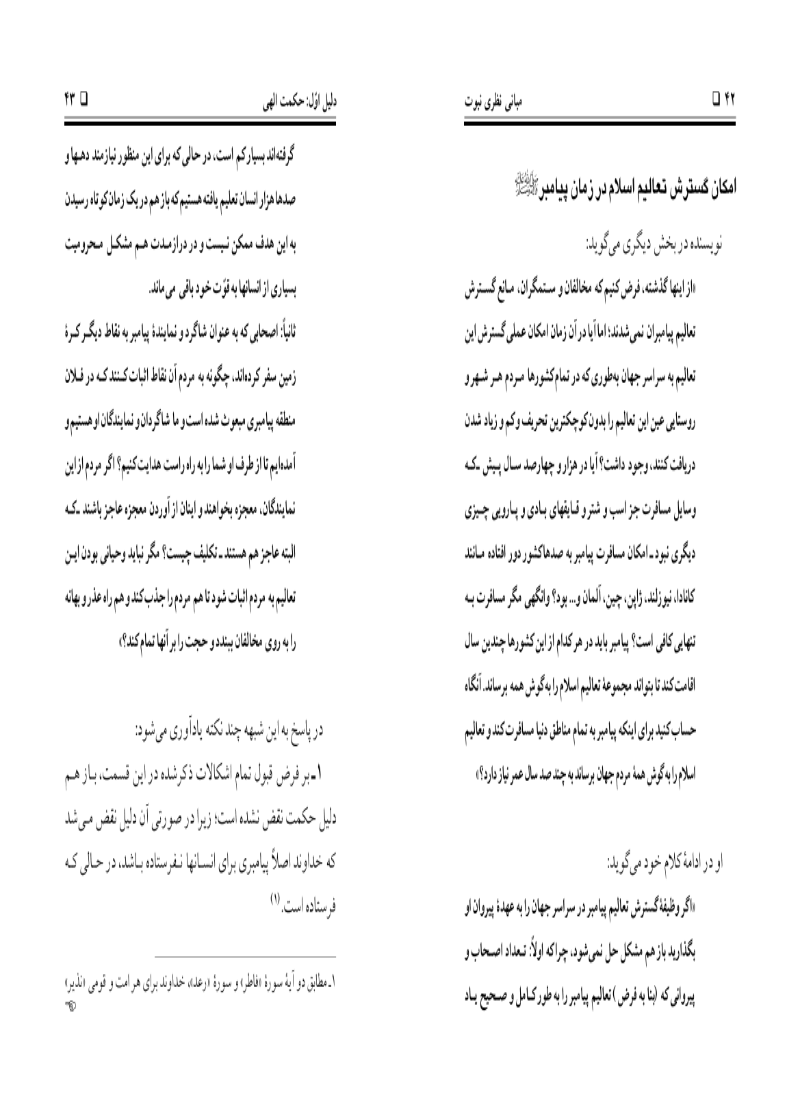 ۴۲ □ مبانی نظری نبوت
امکان گسترش تعالیم اسلام در زمان پیامبرﷺ
نویسنده در بخش دیگری می‌گوید:
«از اینها گذشته، فرض کنیم که مخالفان و ستمگران، مانع گسترش
تعالیم پیامبران نمی‌شدند؛ اما آیا در آن زمان امکان عملی گسترش این
تعالیم به سراسر جهان به‌طوری که در تمام کشورها مردم هر شهر و
روستایی عین این تعالیم را بدون کوچکترین تحریف و کم و زیاد شدن
دریافت کنند، وجود داشت؟ آیا در هزار و چهارصد سال پیش ـ که
وسایل مسافرت جز اسب و شتر و قایقهای بادی و پارویی چیزی
دیگری نبود ـ امکان مسافرت پیامبر به صدها کشور دور افتاده مانند
کانادا، نیوزلند، ژاپن، چین، آلمان و... بود؟ وانگهی مگر مسافرت به
تنهایی کافی است؟ پیامبر باید در هر کدام از این کشورها چندین سال
اقامت کند تا بتواند مجموعهٔ تعالیم اسلام را به گوش همه برساند. آنگاه
حساب کنید برای اینکه پیامبر به تمام مناطق دنیا مسافرت کند و تعالیم
اسلام را به گوش همهٔ مردم جهان برساند به چند صد سال عمر نیاز دارد؟»
او در ادامهٔ کلام خود می‌گوید:
«اگر وظیفهٔ گسترش تعالیم پیامبر در سراسر جهان را به عهدهٔ پیروان او
بگذارید باز هم مشکل حل نمی‌شود، چرا که اولاً: تعداد اصحاب و
پیروانی که (بنا به فرض) تعالیم پیامبر را به طور کامل و صحیح یاد
دلیل اوّل: حکمت الهی □ ۴۳
گرفته‌اند بسیار کم است، در حالی که برای این منظور نیازمند دهها و
صدها هزار انسان تعلیم یافته هستیم که باز هم در یک زمان کوتاه رسیدن
به این هدف ممکن نیست و در درازمدت هم مشکل محرومیت
بسیاری از انسانها به قوّت خود باقی می‌ماند.
ثانیاً: اصحابی که به عنوان شاگرد و نمایندهٔ پیامبر به نقاط دیگر کرهٔ
زمین سفر کرده‌اند، چگونه به مردم آن نقاط اثبات کنند که در فلان
منطقه پیامبری مبعوث شده است و ما شاگردان و نمایندگان او هستیم و
آمده‌ایم تا از طرف او شما را به راه راست هدایت کنیم؟ اگر مردم از این
نمایندگان، معجزه بخواهند و اینان از آوردن معجزه عاجز باشند ـ که
البته عاجز هم هستند ـ تکلیف چیست؟ مگر نباید وحیانی بودن این
تعالیم به مردم اثبات شود تا هم مردم را جذب کند و هم راه عذر و بهانه
را به روی مخالفان ببندد و حجت را بر آنها تمام کند؟»
در پاسخ به این شبهه چند نکته یادآوری می‌شود:
۱ـ بر فرض قبول تمام اشکالات ذکرشده در این قسمت، باز هم
دلیل حکمت نقض نشده است؛ زیرا در صورتی آن دلیل نقض می‌شد
که خداوند اصلاً پیامبری برای انسانها نفرستاده باشد، در حالی که
فرستاده است.(۱)
۱ـ مطابق دو آیهٔ سورهٔ «فاطر» و سورهٔ «رعد»، خداوند برای هر امت و قومی «نذیر»